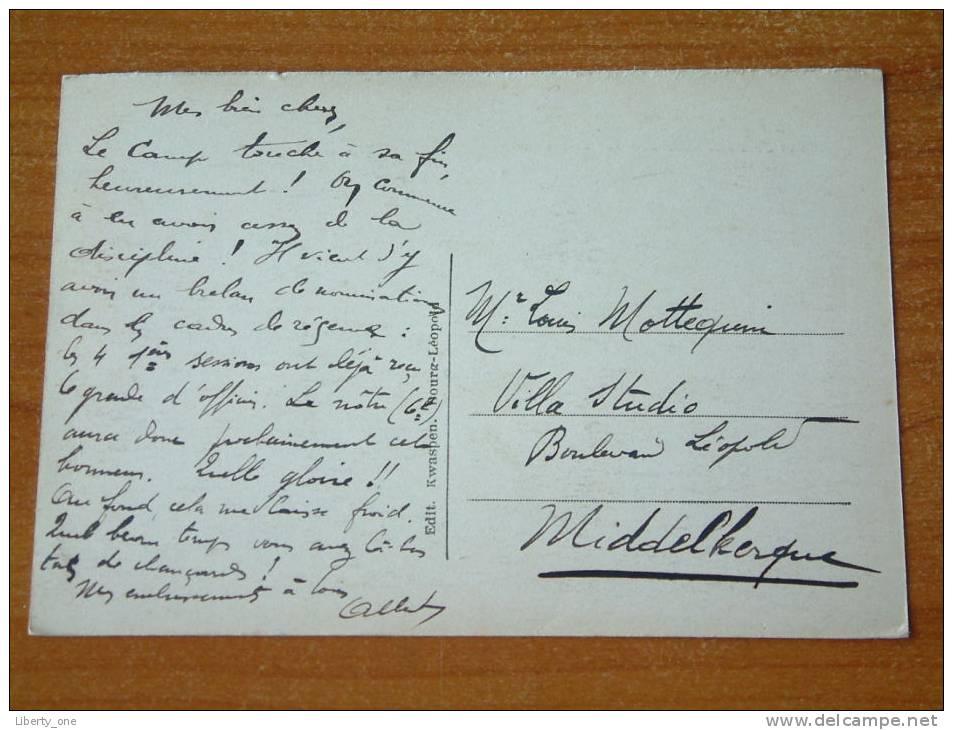 Mes bien chers,
Le Camp touche à sa fin,
heureusement ! On commence
à en avoir assez de la
discipline ! Il vient d'y
avoir un brelan de nominations
dans les cadres de réserve :
les 4 1ères sessions ont déjà reçu
le grade d'officier. La nôtre (6e)
aura donc prochainement cet
honneur. Quelle gloire !!
Au fond, cela me laisse froid.
Quel beau temps vous avez là-bas
tas de chançards !
Mes embrassements à tous
Albert
Edit. Kwaspen. Bourg-Léopold
Mr. Louis Mottequin
Villa Studio
Boulevard Léopold
Middelkerque
Liberty_one
www.delcampe.net